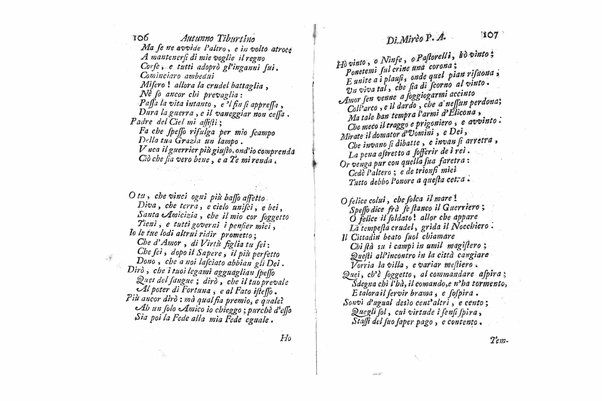 106 Autunno Tiburtino
Ma se ne avvide l'altro, e in volto atroce
A mantenersi di me voglie il regno
Corse, e tutti adoprò gl'inganni sui.
Cominciaro ambedui
Misero! allora la crudel battaglia,
Nè so ancor chi prevaglia:
Passa la vita intanto, e 'l fin s'appresse,
Dura la guerra, e il vaneggiar non cessa.
Padre del Ciel mi assisti;
Fa che spesso rifulga per mio scampo
Della tua Grazia un lampo.
Vuca il guerrier più giusto, ond'io comprenda
Ciò che sia vero bene, e a Te mi renda.
O tu, che vinci ogni più basso affetto
Diva, che terra, e cielo unisci, e bei,
Santa Amicizia, che il mio cor soggetto
Tieni, e tutti governi i pensier miei,
Io le tue lodi altrui ridir prometto;
Che d'Amor, di Virtù figlia tu sei:
Che sei, dopo il Sapere, il più perfetto
Dono, che a noi lasciato abbian gli Dei.
Dirò, che i tuoi legami agguagliun spesso
Quei del sangue; dirò, che il tuo prevale
Al poter di Fortuna, e al Fato istesso.
Più ancor dirò: ma qual fia premio, e quale?
Ah un solo Amico io chieggo; purchè d'esso
Sia poi la Fede alla mia Fede eguale.
Ho
Di Mirèo P. A. 107
Hò vinto, o Ninfe, o Pastorelli, hò vinto;
Ponetemi sul crine una corona;
E unite a i plausi, onde quel pian risuona,
Un viva tal, che sia di scorno al vinto.
Amor sen venne a soggiogarmi accinto
Coll'arco, e il dardo, che a nessun perdona;
Ma tale ban tempra l'armi d'Elicona,
Che meco il traggo e prigioniero, e avvinto.
Mirate il domator d'Uomini, e Dei,
Che invano si dibatte, e invan si arretra,
La pena astretto a sofferir de i rei.
Or venga pur con quella sua faretra:
Cedè l'altero; e de trionfi miei
Tutto debbo l'onore a questa cetra.
O felice colui, che solca il mare!
Spesso dice frà se stanco il Guerriero;
O felice il soldato! allor che appare
La tempesta crudel, grida il Nocchiero.
Il Cittadin beato suol chiamare
Chi stà su i campi in umil magistero;
Questi all'incontro in la città cangiare
Vorria la villa, e variar mestiero.
Quei, ch'è soggetto, al commandare aspira;
Sdegna chi l'hà, il comando, e n'ha tormento,
E talora il servir brama, e sospira.
Sonvi d'ugual desìo cent'altri, e cento;
Quegli sol, cui virtude i sensi spira,
Stassi del suo saper pago, e contento.
Tem-